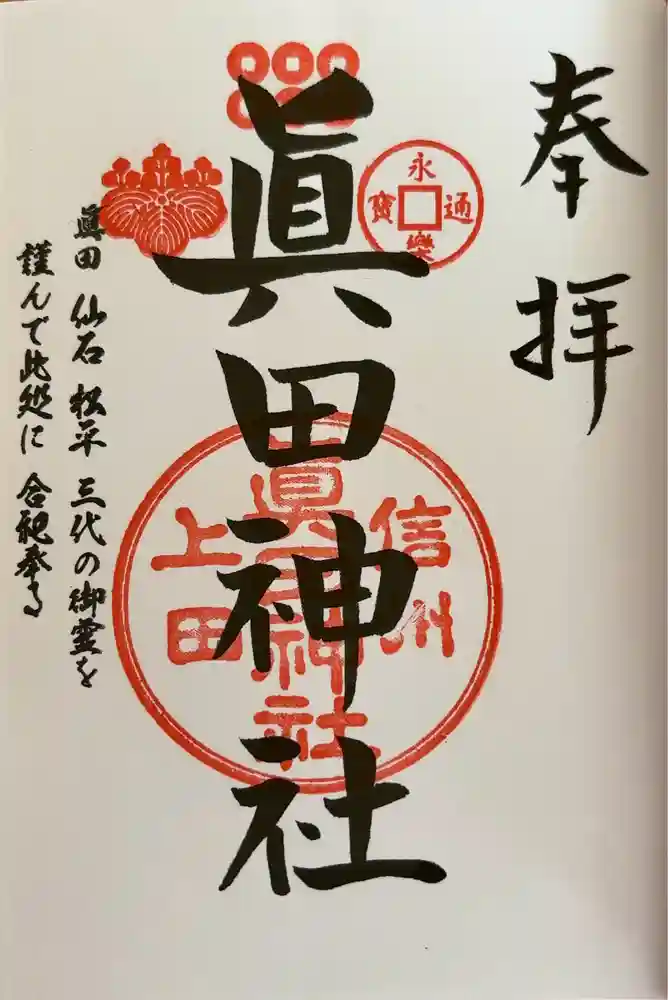 奉拝
眞田神社
永樂通寶
信州
眞田神社
上田
眞田 仙石 松平 三代の御霊を
謹んで此処に 合祀奉る